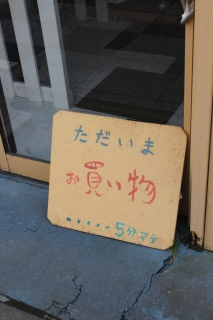 ただいま
お買い物
・・・・・5分マデ